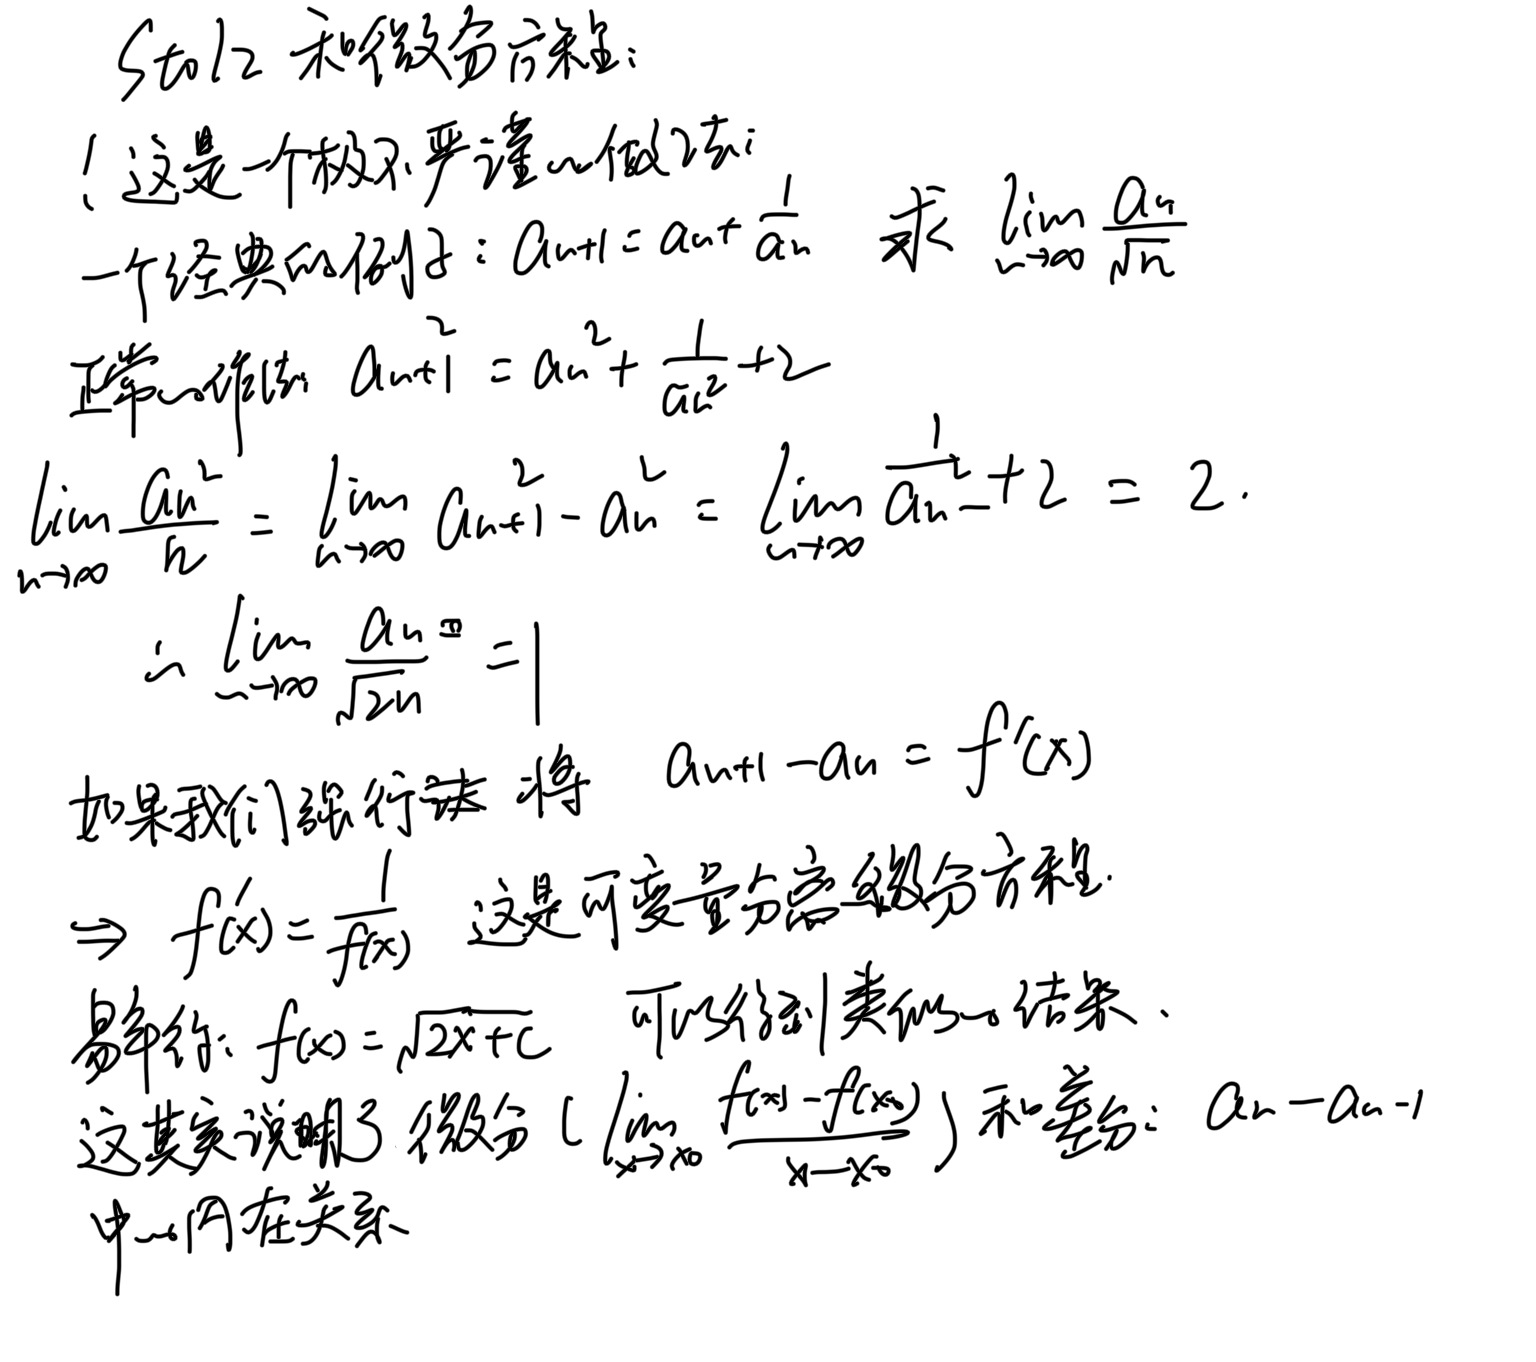 Stolz 和微分方程:
! 这是一个极不严谨的做法:
一个经典的例子: aₙ₊₁ = aₙ + 1/aₙ 求 lim_{n→∞} aₙ/√n
正常的作法: aₙ₊₁² = aₙ² + 1/aₙ² + 2
lim_{n→∞} aₙ²/n = lim_{n→∞} aₙ₊₁² - aₙ² = lim_{n→∞} 1/aₙ² + 2 = 2.
∴ lim_{n→∞} aₙ/√2n = 1
如果我们强行 将 aₙ₊₁ - aₙ = f'(x)
⇒ f'(x) = 1/f(x) 这是可变量分离微分方程.
易解得: f(x) = √2x+C 可以得到类似的结果.
这其实说明了 微分 (lim_{x→x₀} f(x) - f(x₀)/x - x₀) 和差分: aₙ - aₙ₋₁
中的内在关系